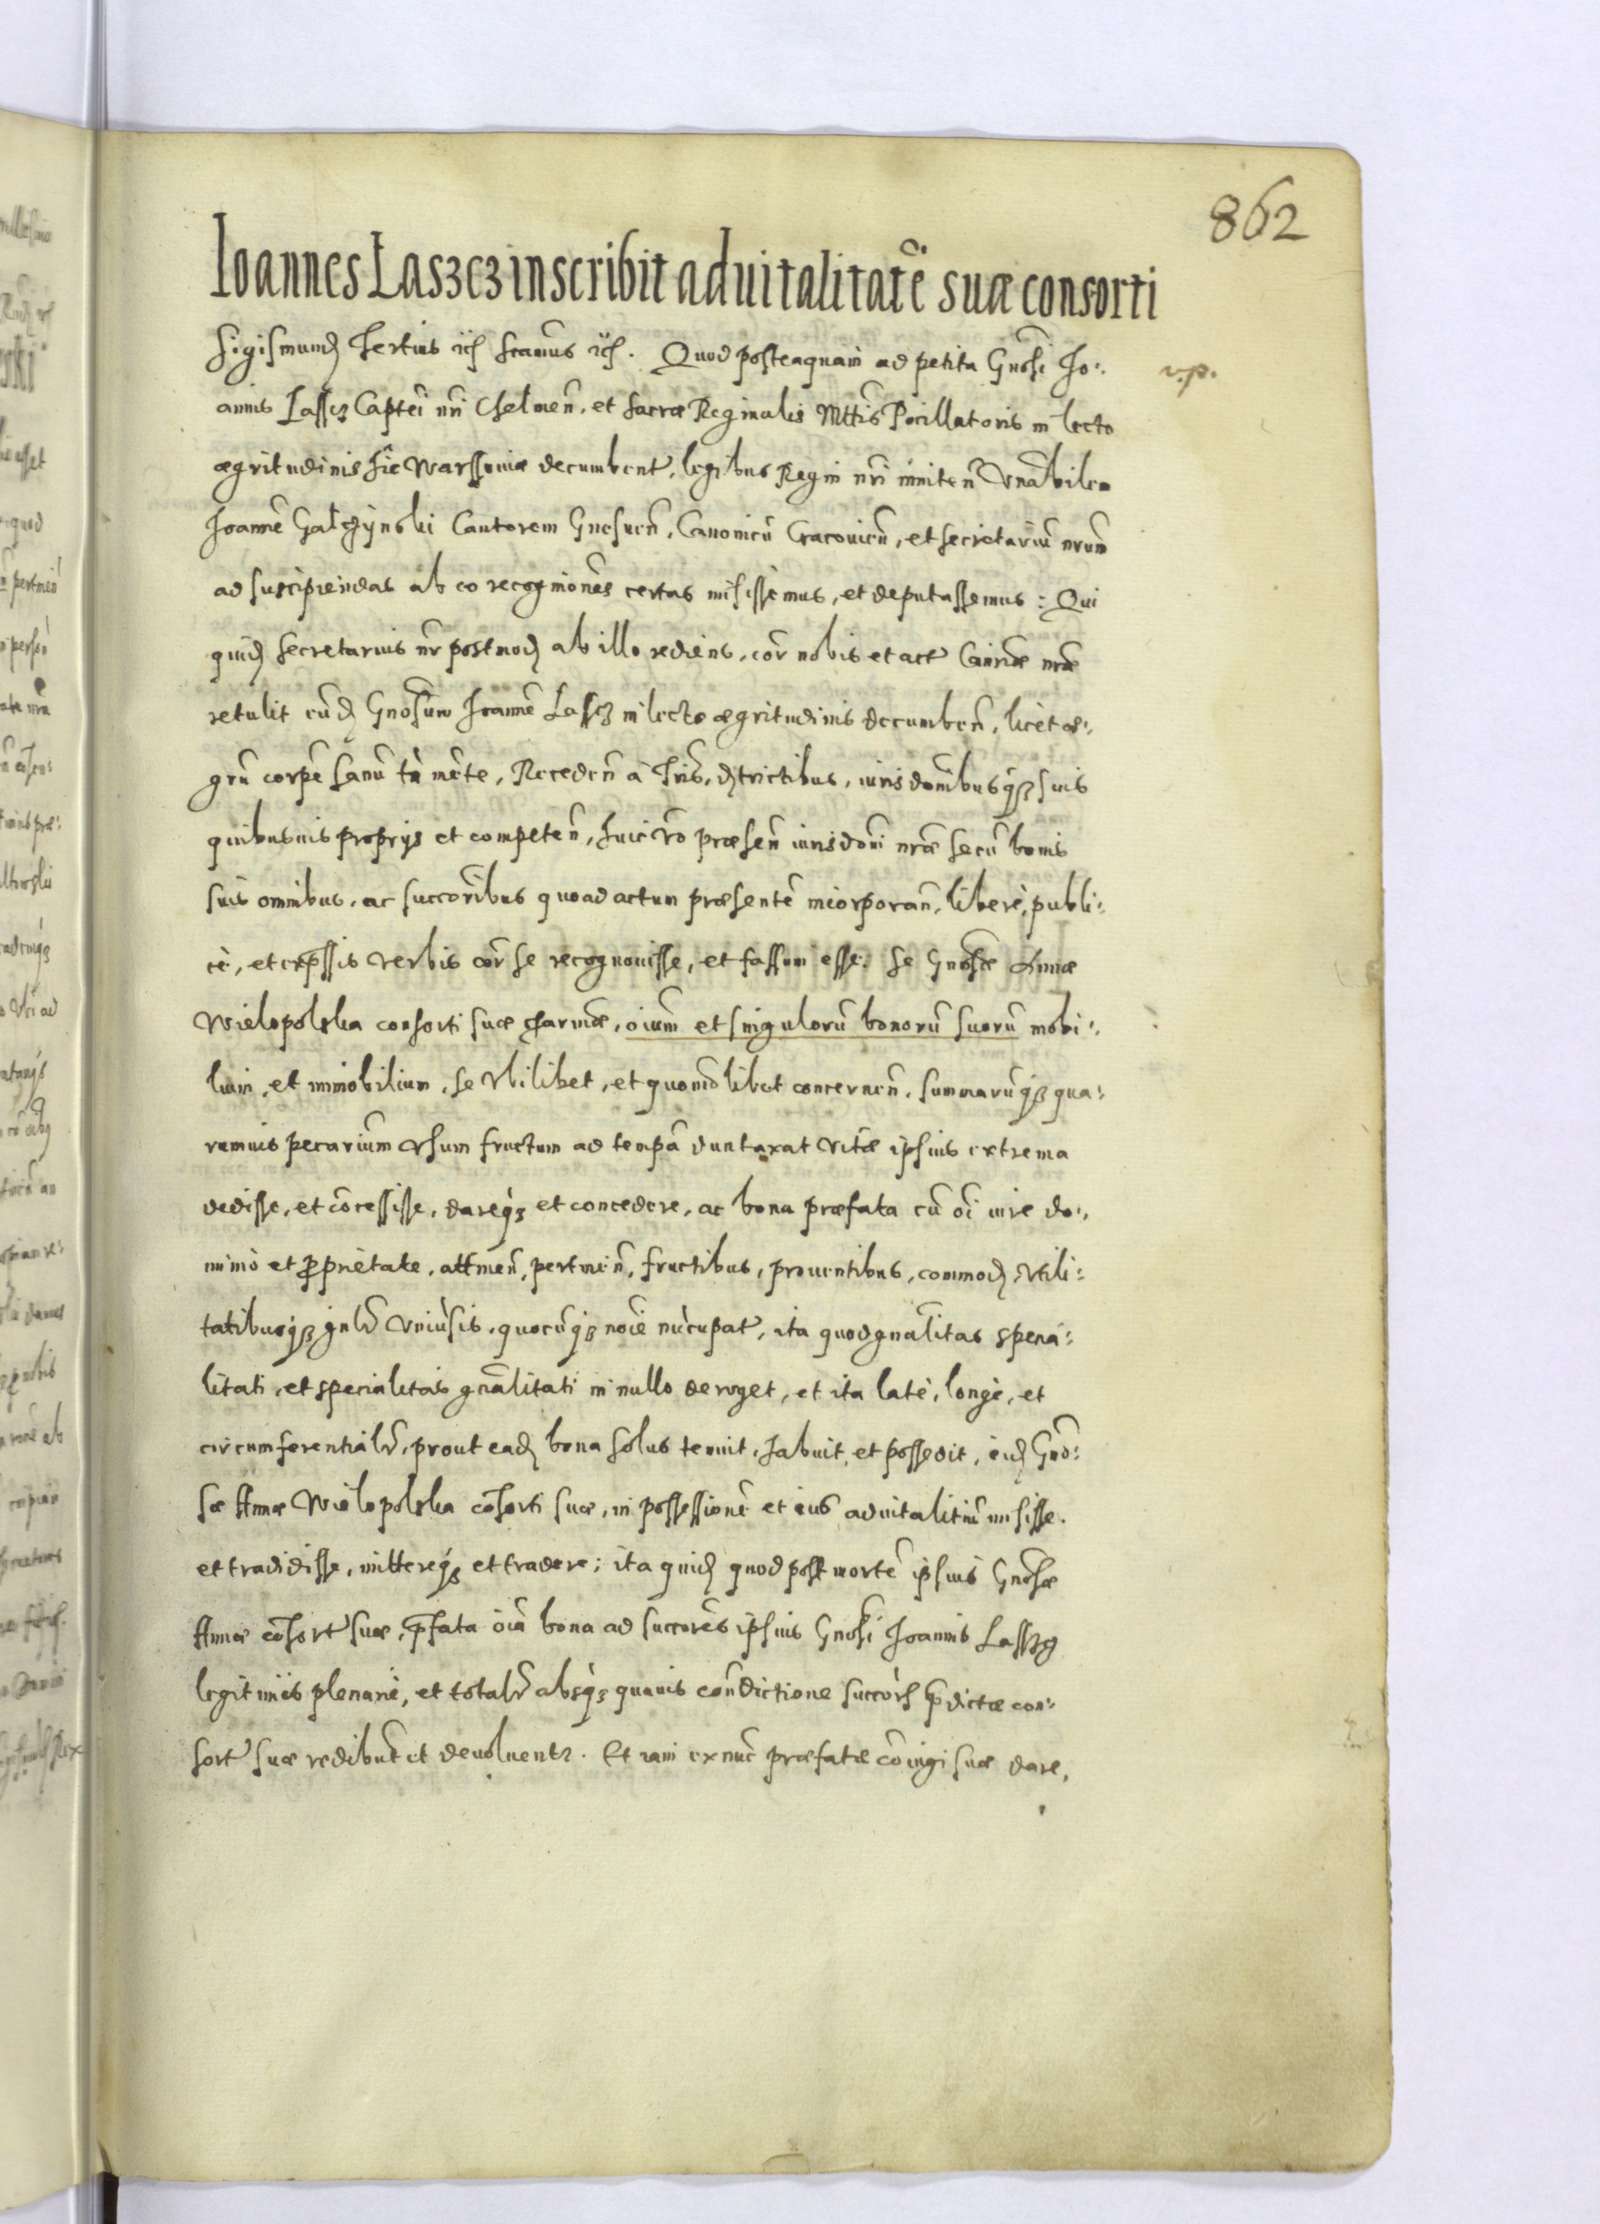 862
Ioannes Laszcz inscribit aduitalitatē suæ consorti
Sigismundq Tertius etc Scamus etc. Quod posteaquam ad petita Gnosi Io:
v.p.
annis Lassz Captei nri Chelmen, et Sacræ Reginalis Mttis Pocillatoris in lecto
ægritudinis hic Warssouiæ decumbent, legibus Regni nri inniten Vnabilem
Joannē Galczynski Cantorem Gnesnen, Canonicū Cracouien, et Secretariū nrum
ad suscipiendas ab eo recogniones certas misissemus, et deputassemus: Qui
quidq Secretarius nr postmodq ab illo rediens, cor nobis et act Canriæ nræ
retulit eūdq Gnosum Joannē Lassz in lecto ægritudinis decumben, licet æ:
grū corpe sanū tn mēte, Receden à Tris, dstrictibus, iurisdonibusqз suis
quibusuis proprijs et competen, huic vo præsen iurisdoni nræ se cū bonis
suis omnibus, ac succoribus quoad actum præsentē incorporan, liberè, publi:
cè, et expssis verbis cor se recognouisse, et fassum esse. Se Gnosæ Annæ
Wielopolska consorti suæ charmæ, oium et singulorū bonorū suorū mobi:
lium, et immobilium, se vbilibet, et quomolibet concernen, summarūqз qua:
rumuis pecarium vsum fructum ad tempa duntaxat vitæ ipsius extrema
dedisse, et cōcessisse, dareqз et concedere, ac bona præfata cū oi iure do:
minio et pprietate, attinen, pertinen, fructibus, prouentibus, commodq, vtili:
tatibusqз gnlr vniusis, quocūqз noie nūcupat, ita quod gnalitas specia:
litati, et specialitas gnalitati in nullo deroget, et ita latè, longè, et
circumferentialr, prout eadq bona solus tenuit, habuit, et possedit, eidq Gno:
sæ Annæ Wielopolska cohorti suæ, in possessionē et ius aduitalitiū misisse.
et tradidisse, mittereqз et tradere; ita quidq quod post mortē ipsius Gnosæ
Annæ cōsort suæ, pfata oia bona ad succores ipsius Gnosi Joannis Lassz
legitimos plenariè, et totalr absqз quauis condictione succorq pdictæ con:
sort suæ redibūt et deuoluentr. Et iam ex nūc præfatæ cōiugi suæ dare,